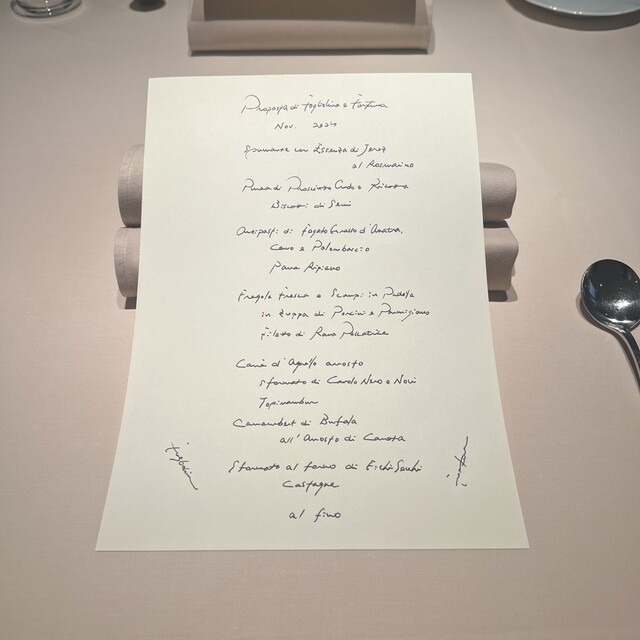 Proposta di Fogliolina e Fortuna
Nov. 2024
Spumante con Essenza di Jerez
al Rosmarino
Purea di Prosciutto Crudo e Ricotta
Biscotti di Semi
Antipasti di Fegato Grasso d'Anatra,
Cervo e Palombaccio
Pane Ripieno
Fregola Fresca e Scampi in Padella
in Zuppa di Porcini e Parmigiano
Filetto di Rana Pescatrice
Carrè d'Agnello arrosto
Sformato di Cavolo Nero e Noci
Topinambur
Camembert di Bufala
all'Arrosto di Carota
Sformato al forno di
Castagne
al fino